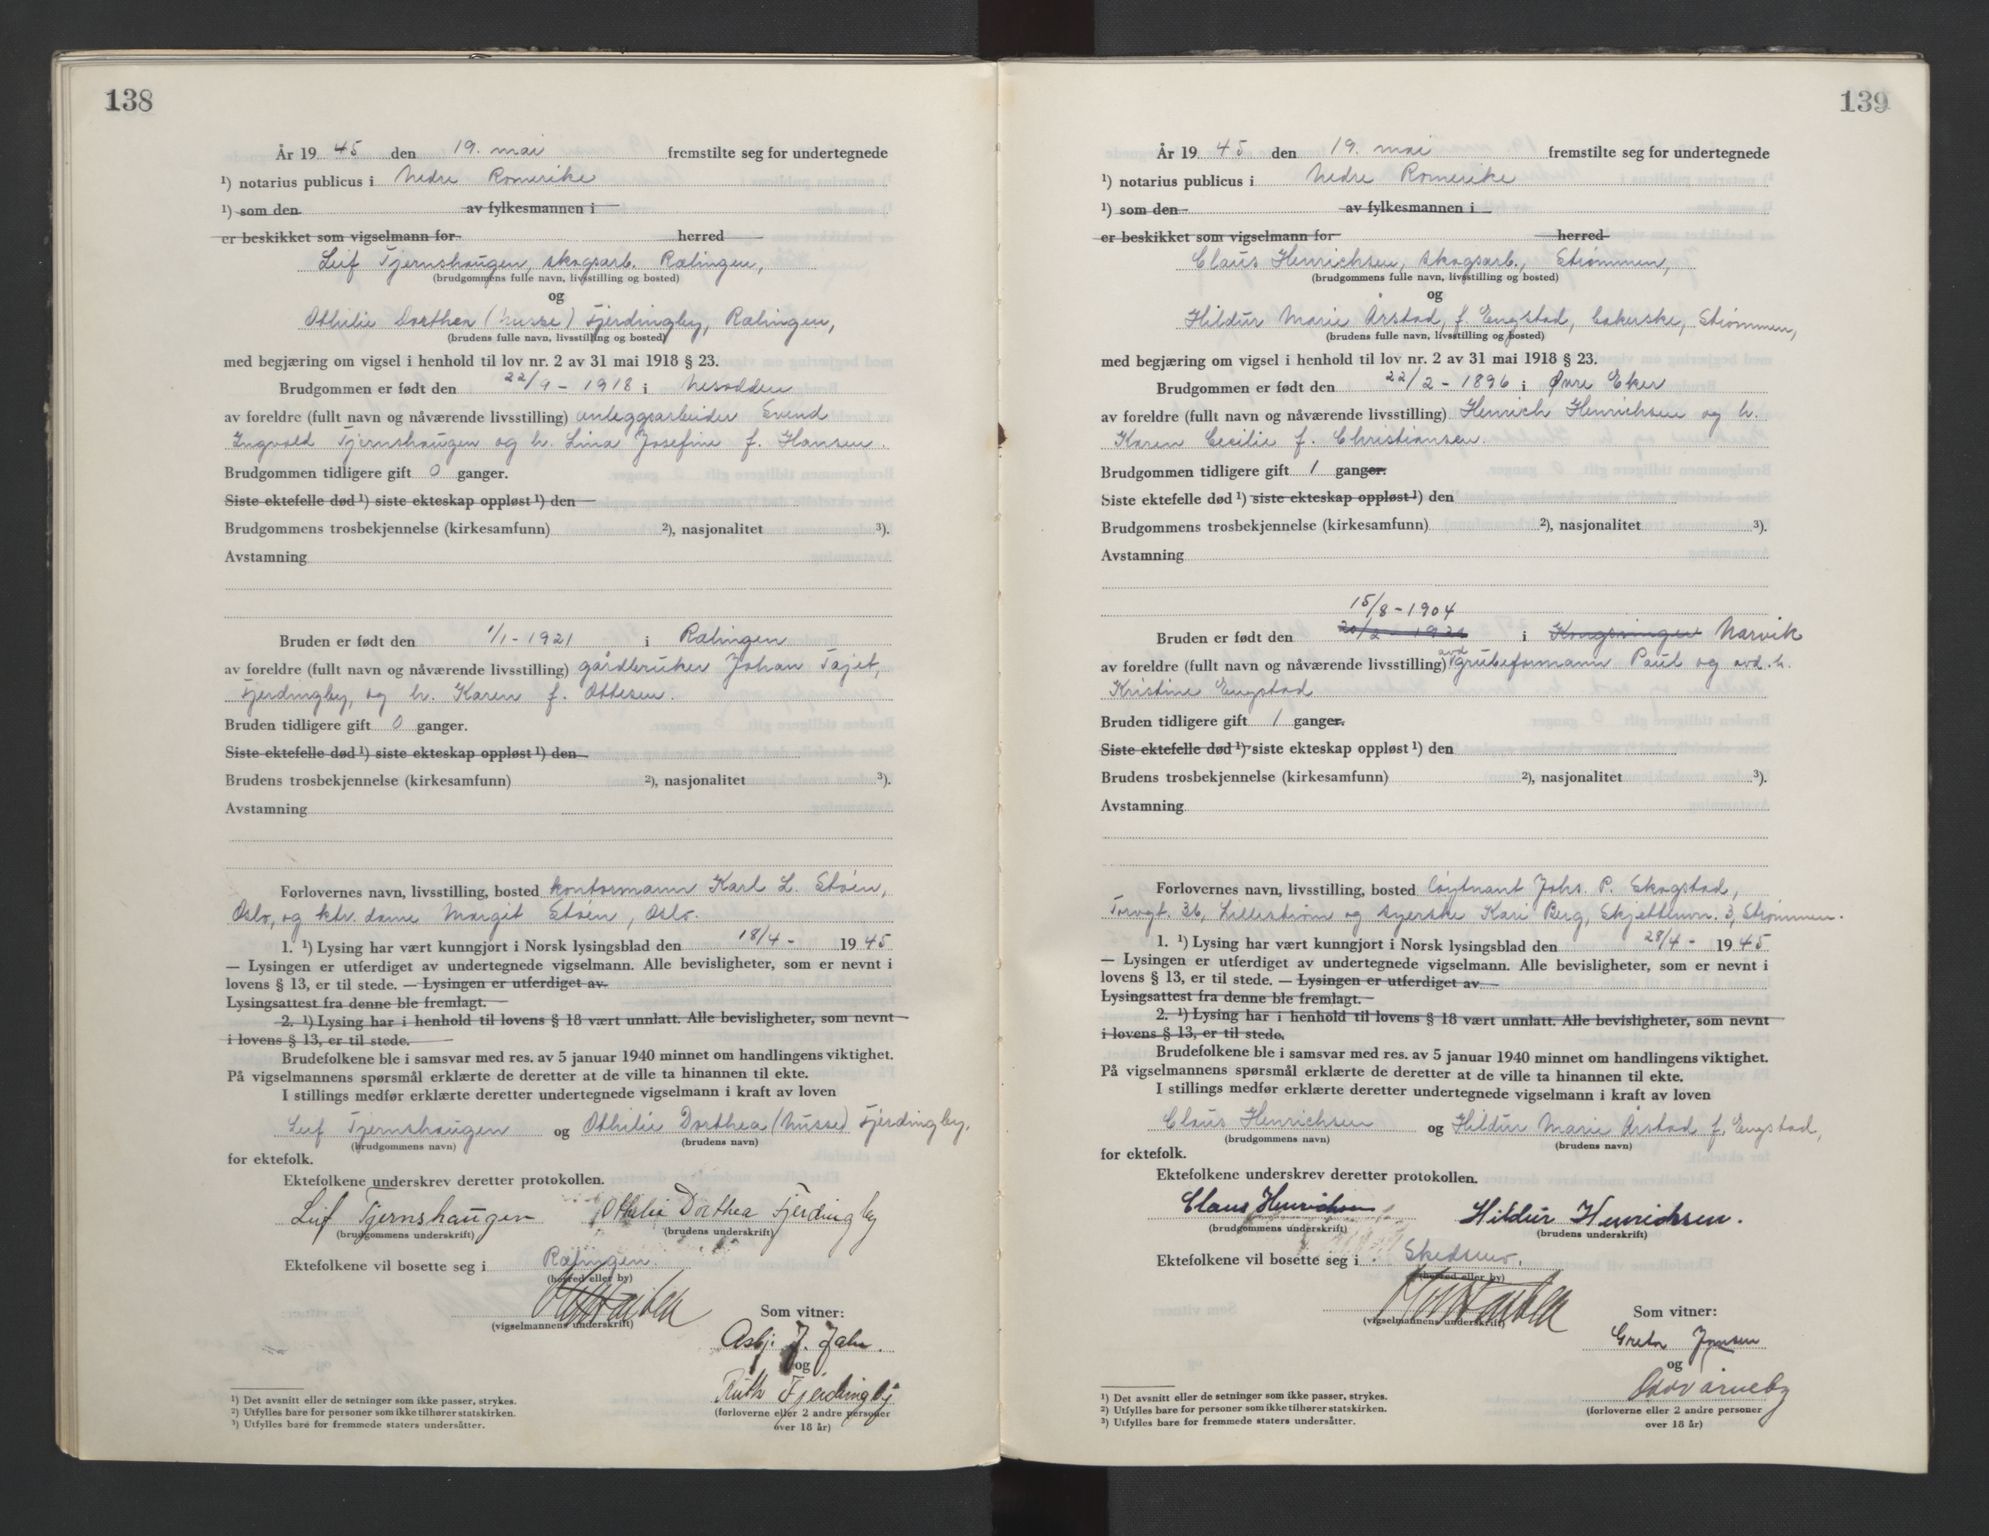 138
År 19 45 den 19. mai fremstilte seg for undertegnede
¹) notarius publicus i Nedre Romerike
¹) som den av fylkesmannen i
er beskikket som vigselmann for herred
Leif Tjernshaugen, skogsarb. Rælingen,
(brudgommens fulle navn, livsstilling og bosted)
og
Othilie Dorthea (Nusse) Fjerdingby, Rælingen,
(brudens fulle navn, livsstilling og bosted)
med begjæring om vigsel i henhold til lov nr. 2 av 31 mai 1918 § 23.
Brudgommen er født den 22/9 - 1918 i Nesodden
av foreldre (fullt navn og nåværende livsstilling) anleggsarbeider Svend
Ingvald Tjernshaugen og h. Lina Josefine f. Hansen.
Brudgommen tidligere gift 0 ganger.
Siste ektefelle død ¹) siste ekteskap oppløst ¹) den
Brudgommens trosbekjennelse (kirkesamfunn) ²), nasjonalitet ³).
Avstamning
Bruden er født den 1/1 - 1921 i Rælingen
av foreldre (fullt navn og nåværende livsstilling) gårdbruker Johan Tajet,
Fjerdingby, og h. Karen f. Ottesen.
Bruden tidligere gift 0 ganger.
Siste ektefelle død ¹) siste ekteskap oppløst ¹) den
Brudens trosbekjennelse (kirkesamfunn) ²), nasjonalitet ³).
Avstamning
Forlovernes navn, livsstilling, bosted kontormann Karl L. Støen,
Oslo, og ktr. dame Margit Støen, Oslo.
1. ¹) Lysing har vært kunngjort i Norsk lysingsblad den 18/4 - 1945
— Lysingen er utferdiget av undertegnede vigselmann. Alle bevisligheter, som er nevnt i
lovens § 13, er til stede. — Lysingen er utferdiget av
Lysingsattest fra denne ble fremlagt.
2. ¹) Lysing har i henhold til lovens § 18 vært unnlatt. Alle bevisligheter, som nevnt
i lovens § 13, er til stede.
Brudefolkene ble i samsvar med res. av 5 januar 1940 minnet om handlingens viktighet.
På vigselmannens spørsmål erklærte de deretter at de ville ta hinannen til ekte.
I stillings medfør erklærte deretter undertegnede vigselmann i kraft av loven
Leif Tjernshaugen og Othilie Dorthea (Nusse) Fjerdingby,
(brudgommens navn) (brudens navn)
for ektefolk.
Ektefolkene underskrev deretter protokollen.
Leif Tjernshaugen Othilie Dorthea Fjerdingby
(brudgommens underskrift) (brudens underskrift)
Ektefolkene vil bosette seg i Rælingen.
(herred eller by)
Som vitner:
(vigselmannens underskrift)
Asbj. J. Jahr.
og
Ruth Fjerdingby
(forloverne eller 2 andre personer
over 18 år)
¹) Det avsnitt eller de setninger som ikke passer, strykes.
²) Utfylles bare for personer som ikke tilhører statskirken.
³) Utfylles bare for fremmede staters undersåtter.
139
År 19 45 den 19. mai fremstilte seg for undertegnede
¹) notarius publicus i Nedre Romerike
¹) som den av fylkesmannen i
er beskikket som vigselmann for herred
Claus Henrichsen, skogsarb., Strømmen,
(brudgommens fulle navn, livsstilling og bosted)
og
Hildur Marie Årstad, f. Engstad, bakerske, Strømmen,
(brudens fulle navn, livsstilling og bosted)
med begjæring om vigsel i henhold til lov nr. 2 av 31 mai 1918 § 23.
Brudgommen er født den 22/2 - 1896 i Øvre Eker
av foreldre (fullt navn og nåværende livsstilling) Henrich Henrichsen og h.
Karen Cecilie f. Christiansen.
Brudgommen tidligere gift 1 ganger.
Siste ektefelle død ¹) siste ekteskap oppløst ¹) den
Brudgommens trosbekjennelse (kirkesamfunn) ²), nasjonalitet ³).
Avstamning
15/8 - 1904
Bruden er født den 20/2 - 1921 i Kongsvinger Narvik
av foreldre (fullt navn og nåværende livsstilling) avd. grubeformann Paul og avd. h.
Kristine Engstad
Bruden tidligere gift 1 ganger.
Siste ektefelle død ¹) siste ekteskap oppløst ¹) den
Brudens trosbekjennelse (kirkesamfunn) ²), nasjonalitet ³).
Avstamning
Forlovernes navn, livsstilling, bosted løytnant Johs. P. Skogstad,
Torvgt. 36, Lillestrøm og syerske Kari Berg, Skjettenvn. 3, Strømmen.
1. ¹) Lysing har vært kunngjort i Norsk lysingsblad den 28/4 - 1945
— Lysingen er utferdiget av undertegnede vigselmann. Alle bevisligheter, som er nevnt i
lovens § 13, er til stede. — Lysingen er utferdiget av
Lysingsattest fra denne ble fremlagt.
2. ¹) Lysing har i henhold til lovens § 18 vært unnlatt. Alle bevisligheter, som nevnt
i lovens § 13, er til stede.
Brudefolkene ble i samsvar med res. av 5 januar 1940 minnet om handlingens viktighet.
På vigselmannens spørsmål erklærte de deretter at de ville ta hinannen til ekte.
I stillings medfør erklærte deretter undertegnede vigselmann i kraft av loven
Claus Henrichsen og Hildur Marie Årstad f. Engstad,
(brudgommens navn) (brudens navn)
for ektefolk.
Ektefolkene underskrev deretter protokollen.
Claus Henrichsen Hildur Henrichsen.
(brudgommens underskrift) (brudens underskrift)
Ektefolkene vil bosette seg i Skedsmo.
(herred eller by)
Som vitner:
(vigselmannens underskrift)
Greta Jensen
og
(forloverne eller 2 andre personer
over 18 år)
¹) Det avsnitt eller de setninger som ikke passer, strykes.
²) Utfylles bare for personer som ikke tilhører statskirken.
³) Utfylles bare for fremmede staters undersåtter.